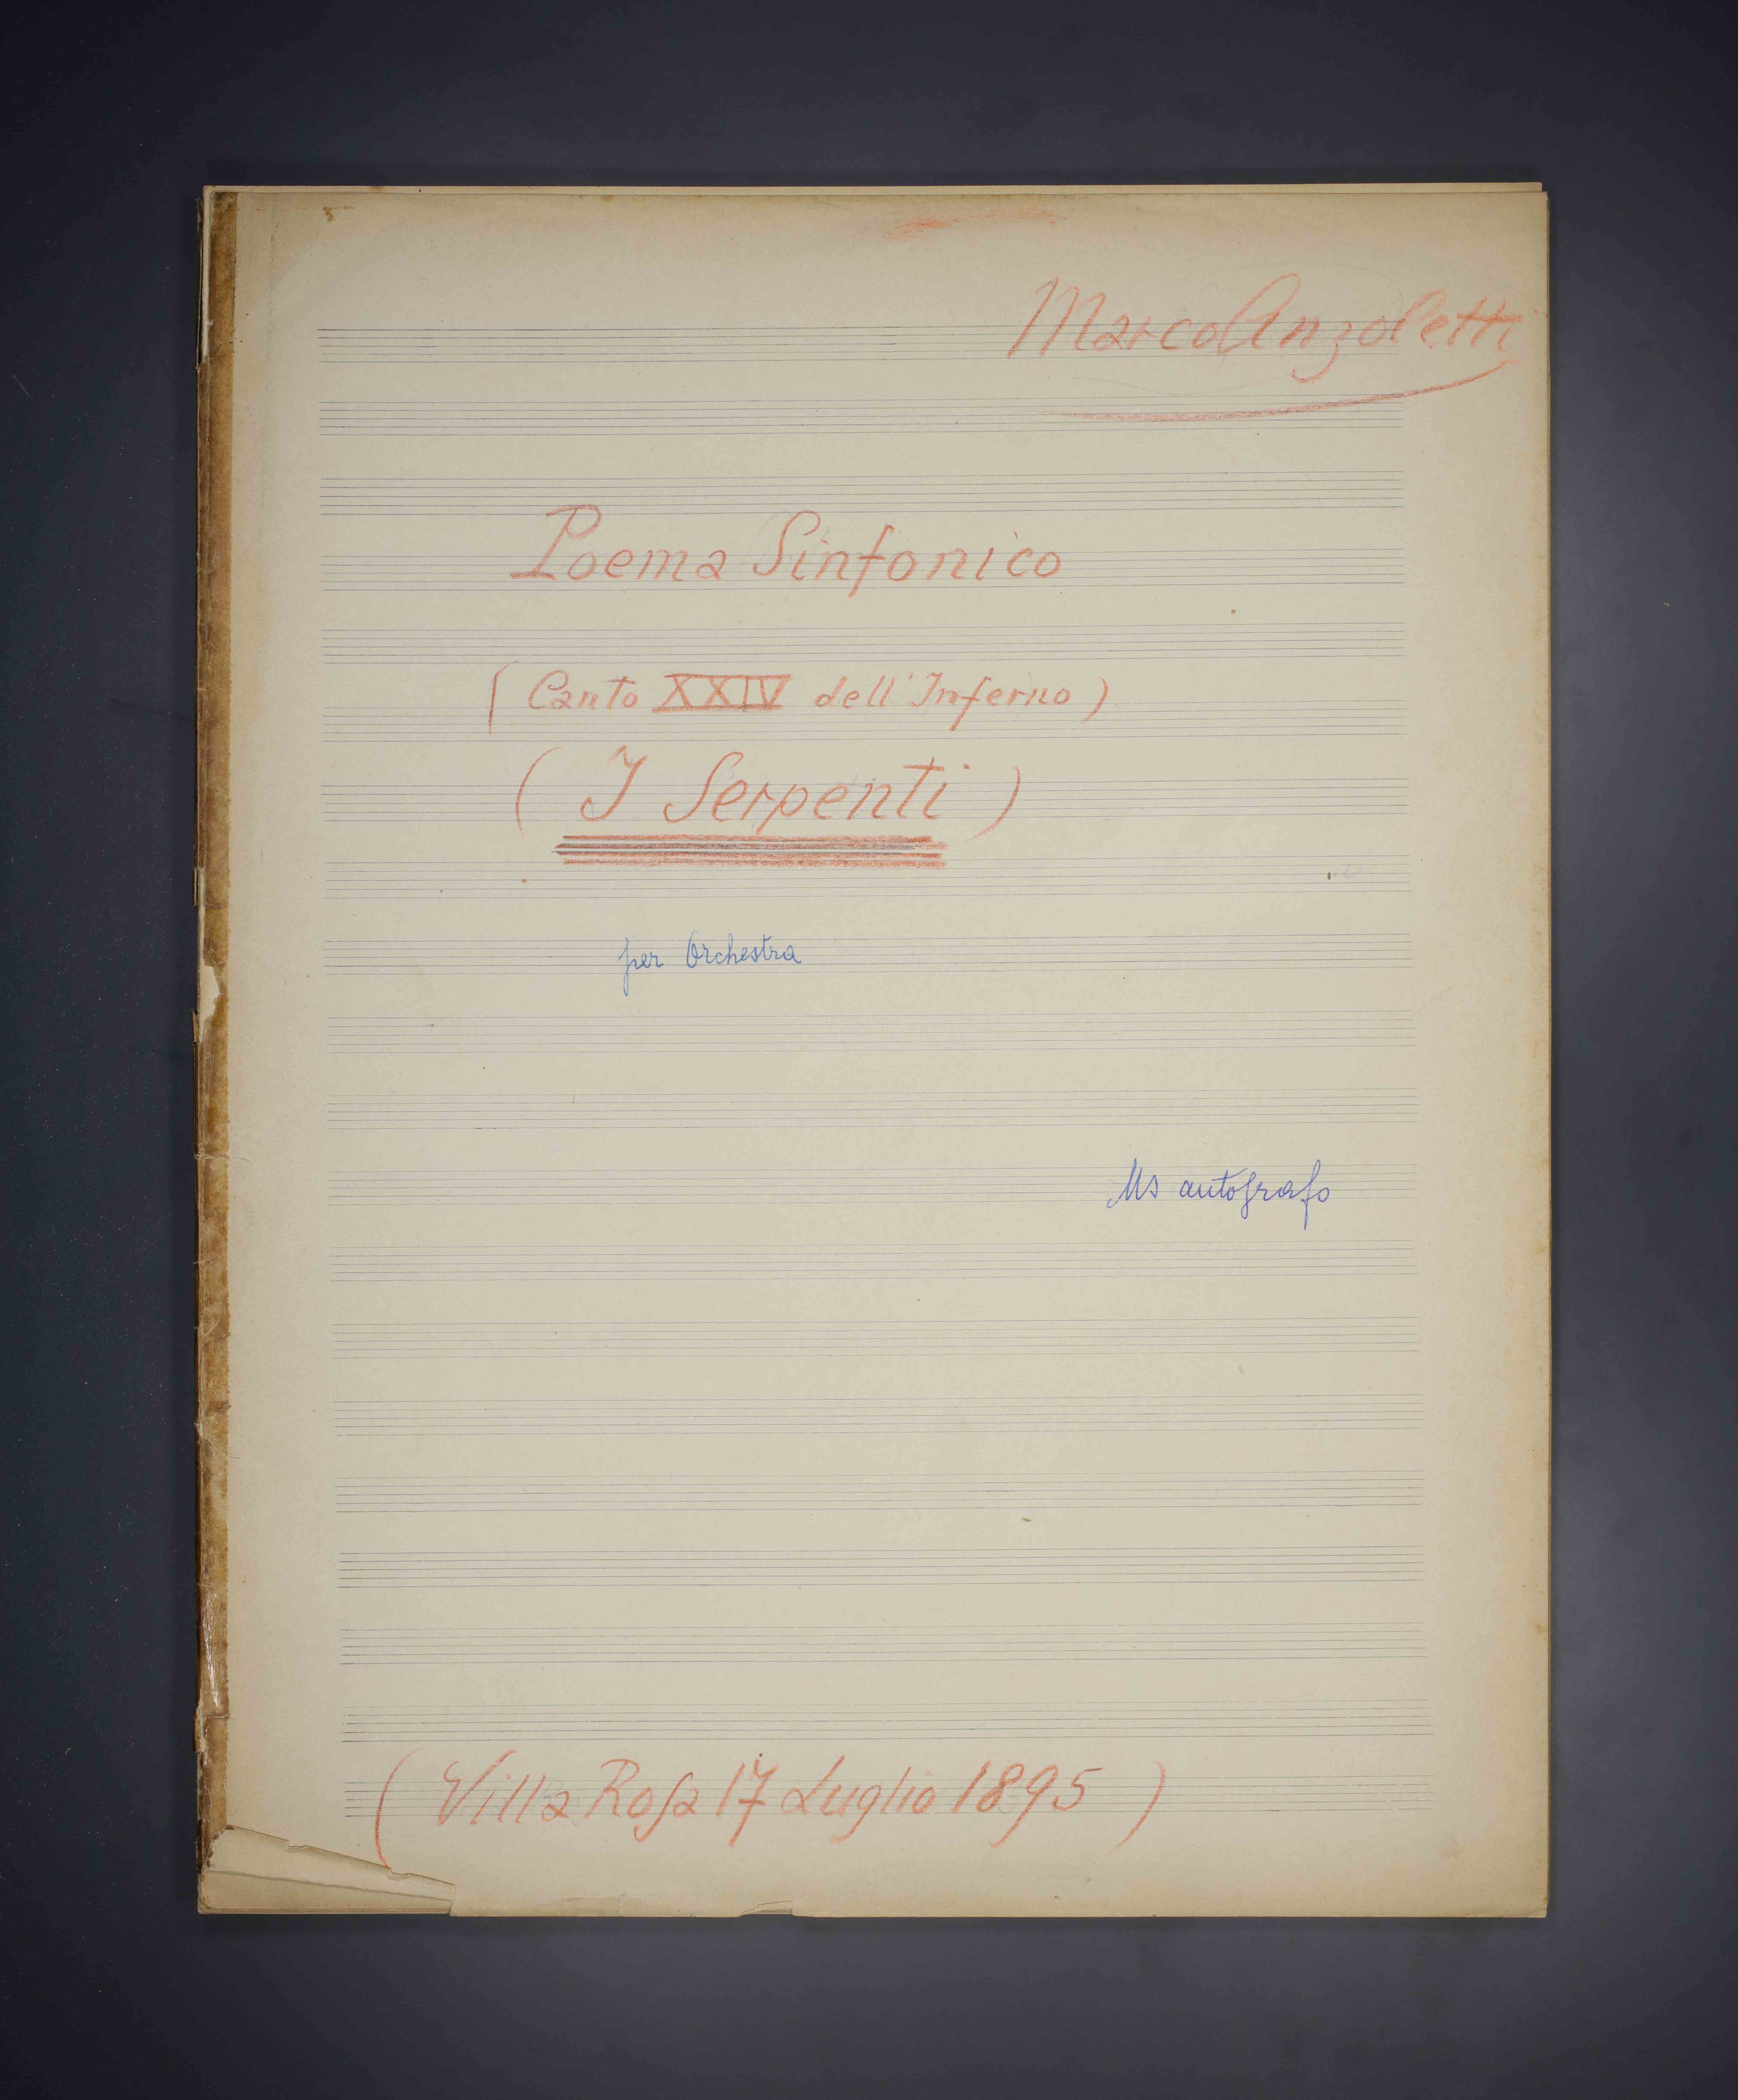 Marco Anzoletti
Poema Sinfonico
(Canto XXIV dell'Inferno)
(I Serpenti)
per Orchestra
Ms autografo
(Villa Rosa 17 Luglio 1895)